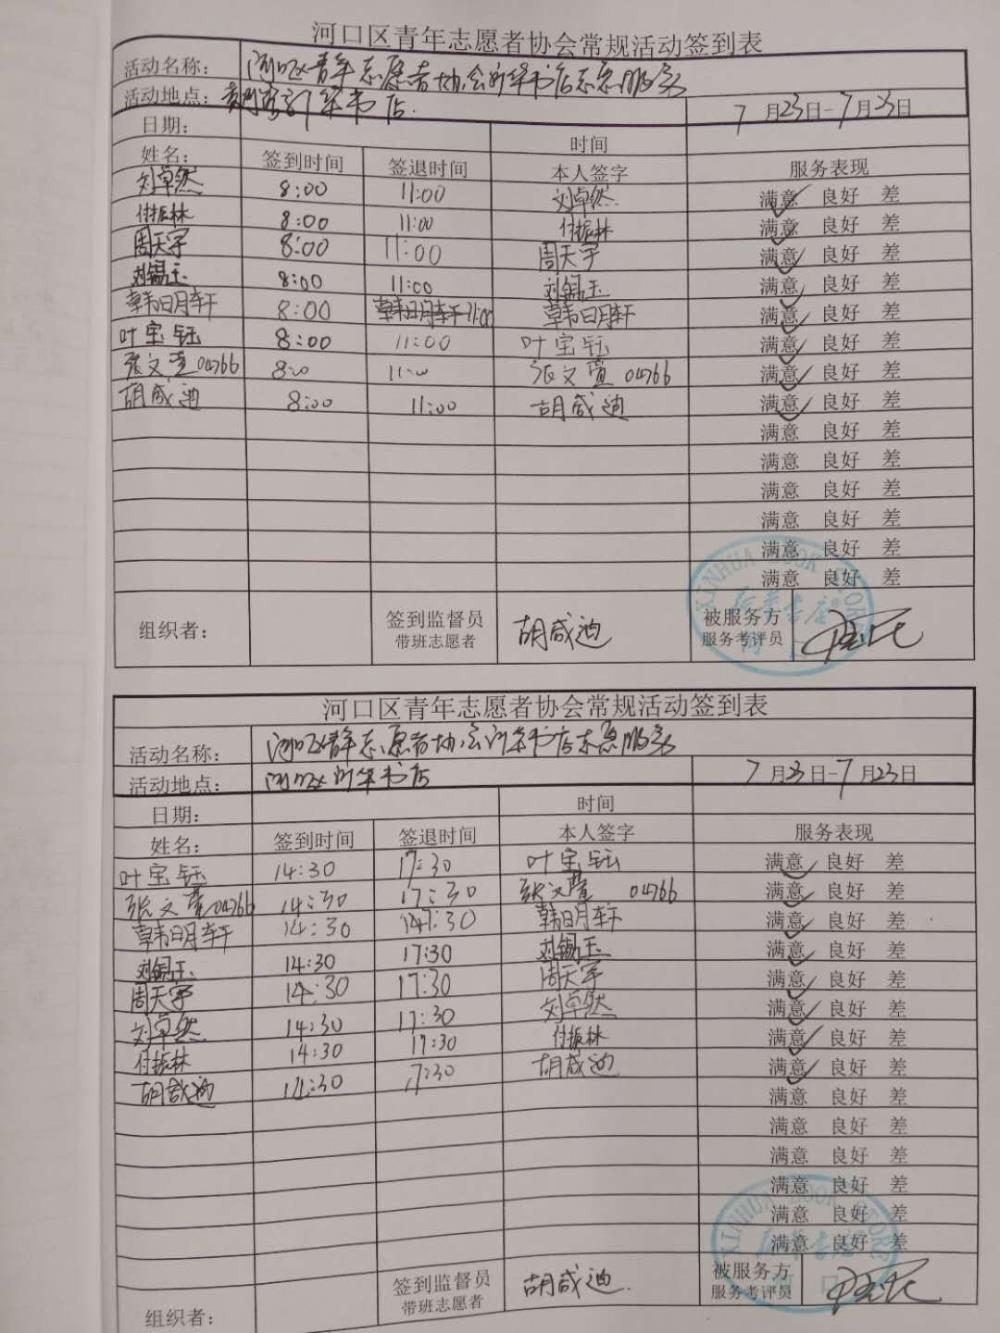 河口区青年志愿者协会常规活动签到表
活动名称: 河口区青年志愿者协会新华书店志愿服务
活动地点: 新华书店 7月23日-7月23日
日期: 时间
姓名: 签到时间 签退时间 本人签字 服务表现
刘卓然 8:00 11:00 刘卓然 满意 良好 差
付振林 8:00 11:00 付振林 满意 良好 差
周天宇 8:00 11:00 周天宇 满意 良好 差
刘锡玉 8:00 11:00 刘锡玉 满意 良好 差
韩明轩 8:00 韩明轩 11:00 韩明轩 满意 良好 差
叶宝钰 8:00 11:00 叶宝钰 满意 良好 差
张文萱 04766 8:00 11:00 张文萱 04766 满意 良好 差
胡咸迪 8:00 11:00 胡咸迪 满意 良好 差
满意 良好 差
满意 良好 差
满意 良好 差
满意 良好 差
满意 良好 差
满意 良好 差
组织者: 签到监督员 带班志愿者 胡咸迪 被服务方 服务考评员
XINHUA BOOK STORE
新华书店
河口
河口区青年志愿者协会常规活动签到表
活动名称: 河口区青年志愿者协会新华书店志愿服务
活动地点: 河口区新华书店 7月23日-7月23日
日期: 时间
姓名: 签到时间 签退时间 本人签字 服务表现
叶宝钰 14:30 17:30 叶宝钰 满意 良好 差
张文萱 04766 14:30 17:30 张文萱 04766 满意 良好 差
韩明轩 14:30 17:30 韩明轩 满意 良好 差
刘锡玉 14:30 17:30 刘锡玉 满意 良好 差
周天宇 14:30 17:30 周天宇 满意 良好 差
刘卓然 14:30 17:30 刘卓然 满意 良好 差
付振林 14:30 17:30 付振林 满意 良好 差
胡咸迪 14:30 17:30 胡咸迪 满意 良好 差
满意 良好 差
满意 良好 差
满意 良好 差
满意 良好 差
满意 良好 差
满意 良好 差
组织者: 签到监督员 带班志愿者 胡咸迪 被服务方 服务考评员
XINHUA BOOK STORE
新华书店
河口